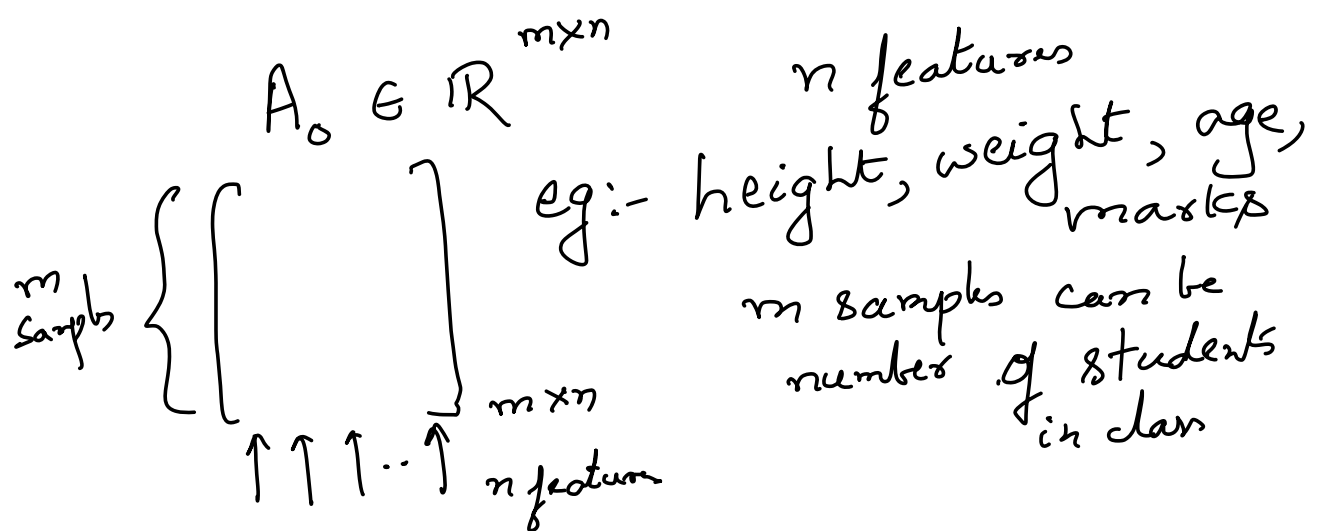 A₀ ∈ ℝ^{m×n}
n features
eg:- height, weight, age,
marks
m
samples
m×n
n features
m samples can be
number of students
in class